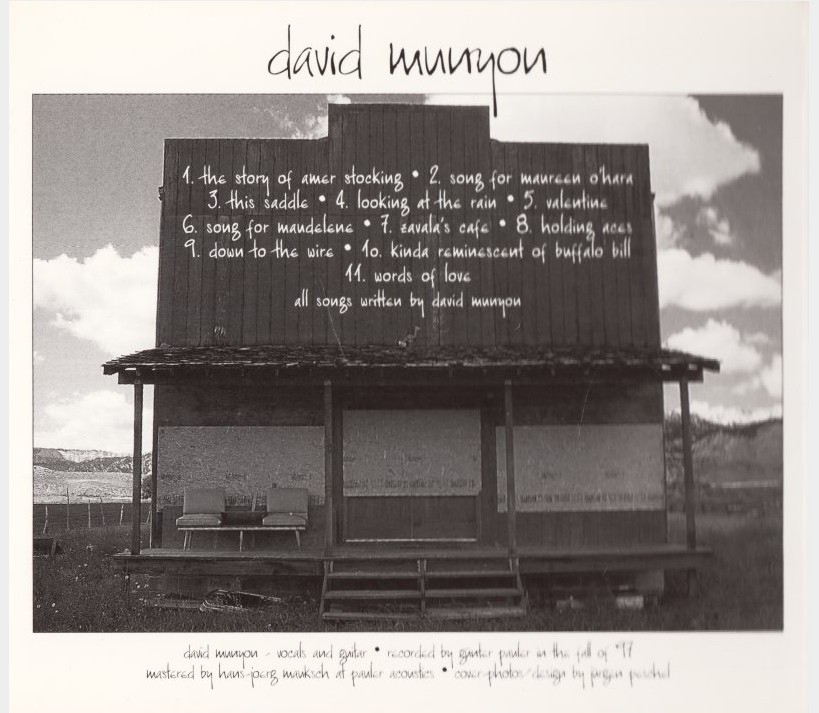 david munyon
1. the story of amer stocking • 2. song for maureen o'hara
3. this saddle • 4. looking at the rain • 5. valentine
6. song for maudelene • 7. zavala's cafe • 8. holding aces
9. down to the wire • 10. kinda reminescent of buffalo bill
11. words of love
all songs written by david munyon
david munyon - vocals and guitar • recorded by günter pauler in the fall of '97
mastered by hans-joerg mauksch at pauler acoustics • cover-photos/design by jürgen peschel